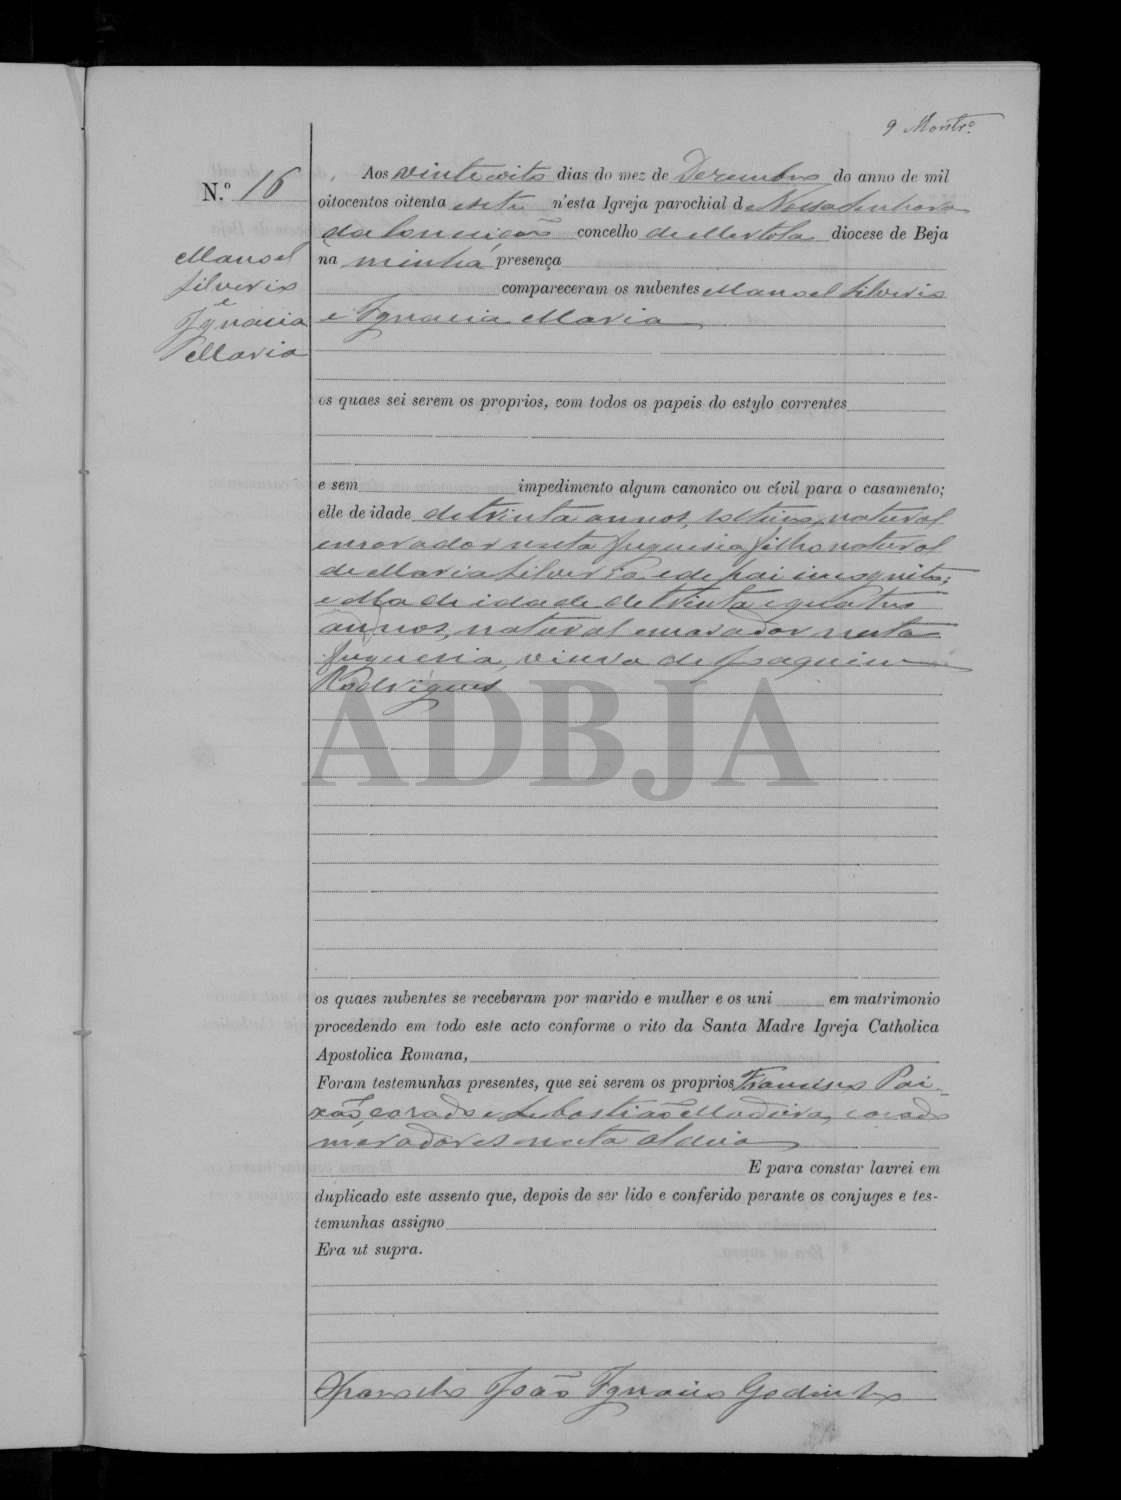 9 Montrº
N.º 16
Manoel
Silverio
e
Ignacia
Maria
Aos vinte e oito dias do mez de Dezembro do anno de mil
oitocentos oitenta e sete n'esta Igreja parochial de Nossa Senhora
da Conceição concelho de Mertola diocese de Beja
na minha presença
compareceram os nubentes Manoel Silverio
e Ignacia Maria
os quaes sei serem os proprios, com todos os papeis do estylo correntes
e sem impedimento algum canonico ou cívil para o casamento;
elle de idade de trinta annos, solteiro, natural
e morador nesta freguesia filho natural
de Maria Silveria e de pai incognito;
e ella de idade de trinta e quatro
annos, natural e morador nesta
freguesia, viuva de Joaquim
Rodrigues
ADBJA
os quaes nubentes se receberam por marido e mulher e os uni em matrimonio
procedendo em todo este acto conforme o rito da Santa Madre Igreja Catholica
Apostolica Romana,
Foram testemunhas presentes, que sei serem os proprios Francisco Pai-
xão, casado e Sebastião Madeira, casado
moradores nesta aldeia
E para constar lavrei em
duplicado este assento que, depois de ser lido e conferido perante os conjuges e tes-
temunhas assigno
Era ut supra.
João Ignacio Godinho